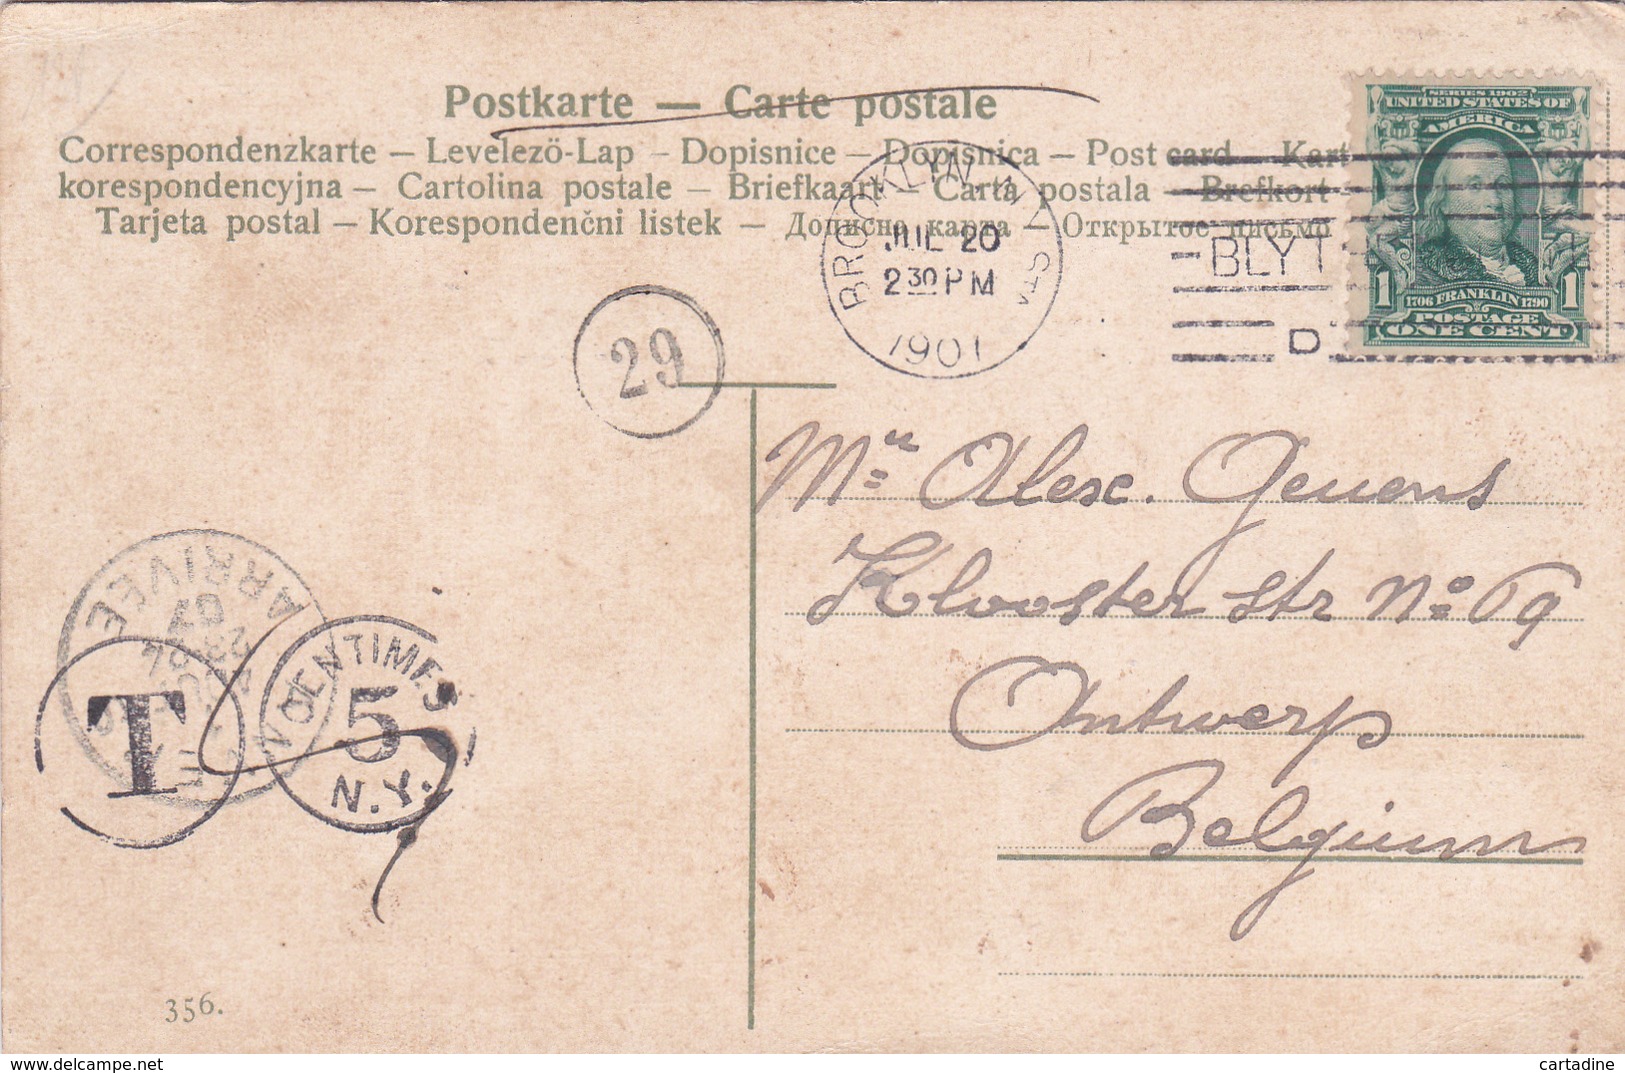 Postkarte — Carte postale
Correspondenzkarte – Levelezö-Lap – Dopisnice – Dopisnica – Post card – Kart
korespondencyjna – Cartolina postale – Briefkaart – Carta postala – Brefkort –
Tarjeta postal – Korespondenčni listek – Дописна карта – Открытое письмо
BROOKLYN, N.Y. STA
JUL 20
2 30 PM
1907
BLYT
SERIES 1902
UNITED STATES OF
AMERICA
1 1706 FRANKLIN 1790 1
POSTAGE
ONE CENT
29
Mr Alex. Geuens
Klooster Str No 69
Antwerp
Belgium
ARRIVÉE
07
T
CENTIMES
5
N.Y.
356.
delcampe.net
cartadine